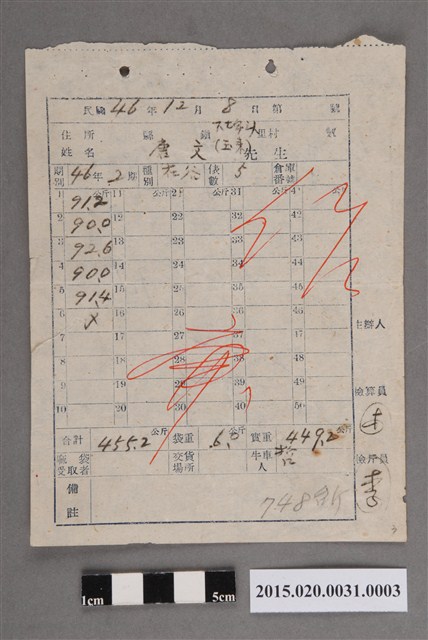 民國 46 年 12 月 8 日 第 號
住所 縣 鎮 里村 號
姓名 唐文 (玉東) 先生
期別 46年 2期 種別 在谷 袋數 5 倉庫番號
1 91.2 公斤 11 21 公斤 31 公斤 41 公斤
2 90.0 12 22 32 42
3 92.6 13 23 33 43
4 90.0 14 24 34 44
5 91.4 15 25 35 45
6 16 26 36 46
7 17 27 37 47
8 18 28 38 48
9 19 29 39 49
10 20 30 40 50
主辦人
檢算員
檢斤員
合計 455.2 公斤 袋重 6.0 公斤 實重 449.2 公斤
麻袋受取者 交貨場所 牛車人
備註 748
1cm 5cm
2015.020.0031.0003